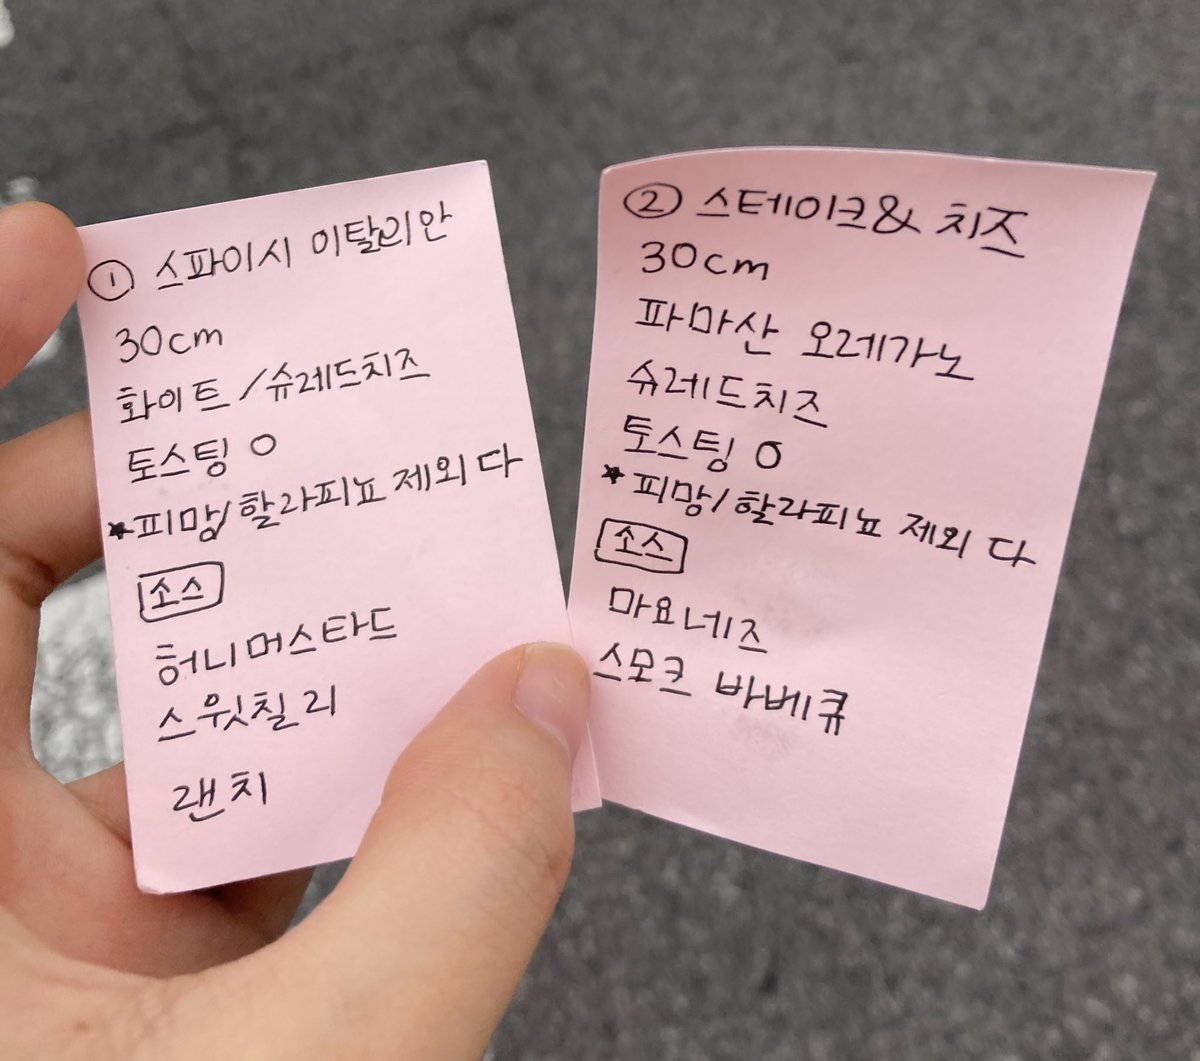 ① 스파이시 이탈리안
30cm
화이트/슈레드치즈
토스팅 O
*피망/할라피뇨 제외 다
소스
허니머스타드
스윗칠리
랜치
② 스테이크& 치즈
30cm
파마산 오레가노
슈레드치즈
토스팅 O
*피망/할라피뇨 제외 다
소스
마요네즈
스모크 바베큐